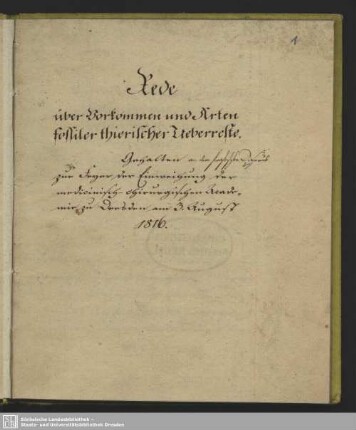 1
Rede
über Vorkommen und Arten
fossiler thierischer Ueberreste.
Gehalten
zur Feyer der Einweihung der
medicinisch-chirurgischen Acade-
mie zu Dresden am 3. August
1816.
Sächsische Landesbibliothek -
Staats- und Universitätsbibliothek Dresden